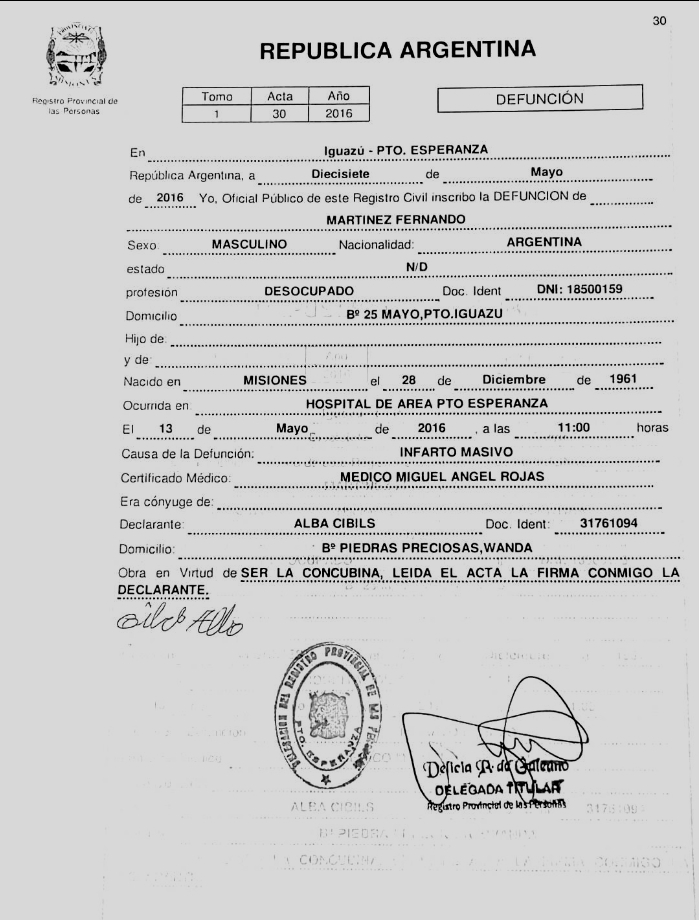 30
REPUBLICA ARGENTINA
Registro Provincial de
las Personas
Tomo Acta Año
1 30 2016
DEFUNCIÓN
En Iguazú - PTO. ESPERANZA
República Argentina, a Diecisiete de Mayo
de 2016 Yo, Oficial Público de este Registro Civil inscribo la DEFUNCION de
MARTINEZ FERNANDO
Sexo: MASCULINO Nacionalidad: ARGENTINA
estado N/D
profesión DESOCUPADO Doc. Ident DNI: 18500159
Domicilio Bº 25 MAYO,PTO.IGUAZU
Hijo de:
y de:
Nacido en MISIONES el 28 de Diciembre de 1961
Ocurrida en: HOSPITAL DE AREA PTO ESPERANZA
El 13 de Mayo de 2016 , a las 11:00 horas
Causa de la Defunción: INFARTO MASIVO
Certificado Médico: MEDICO MIGUEL ANGEL ROJAS
Era cónyuge de:
Declarante: ALBA CIBILS Doc. Ident: 31761094
Domicilio: Bº PIEDRAS PRECIOSAS,WANDA
Obra en Virtud de SER LA CONCUBINA, LEIDA EL ACTA LA FIRMA CONMIGO LA
DECLARANTE.
DELEGACION DEL REGISTRO PROVINCIAL DE LAS
PTO. ESPERANZA
DELEGADA TITULAR
Registro Provincial de las Personas
ALBA CIBILS